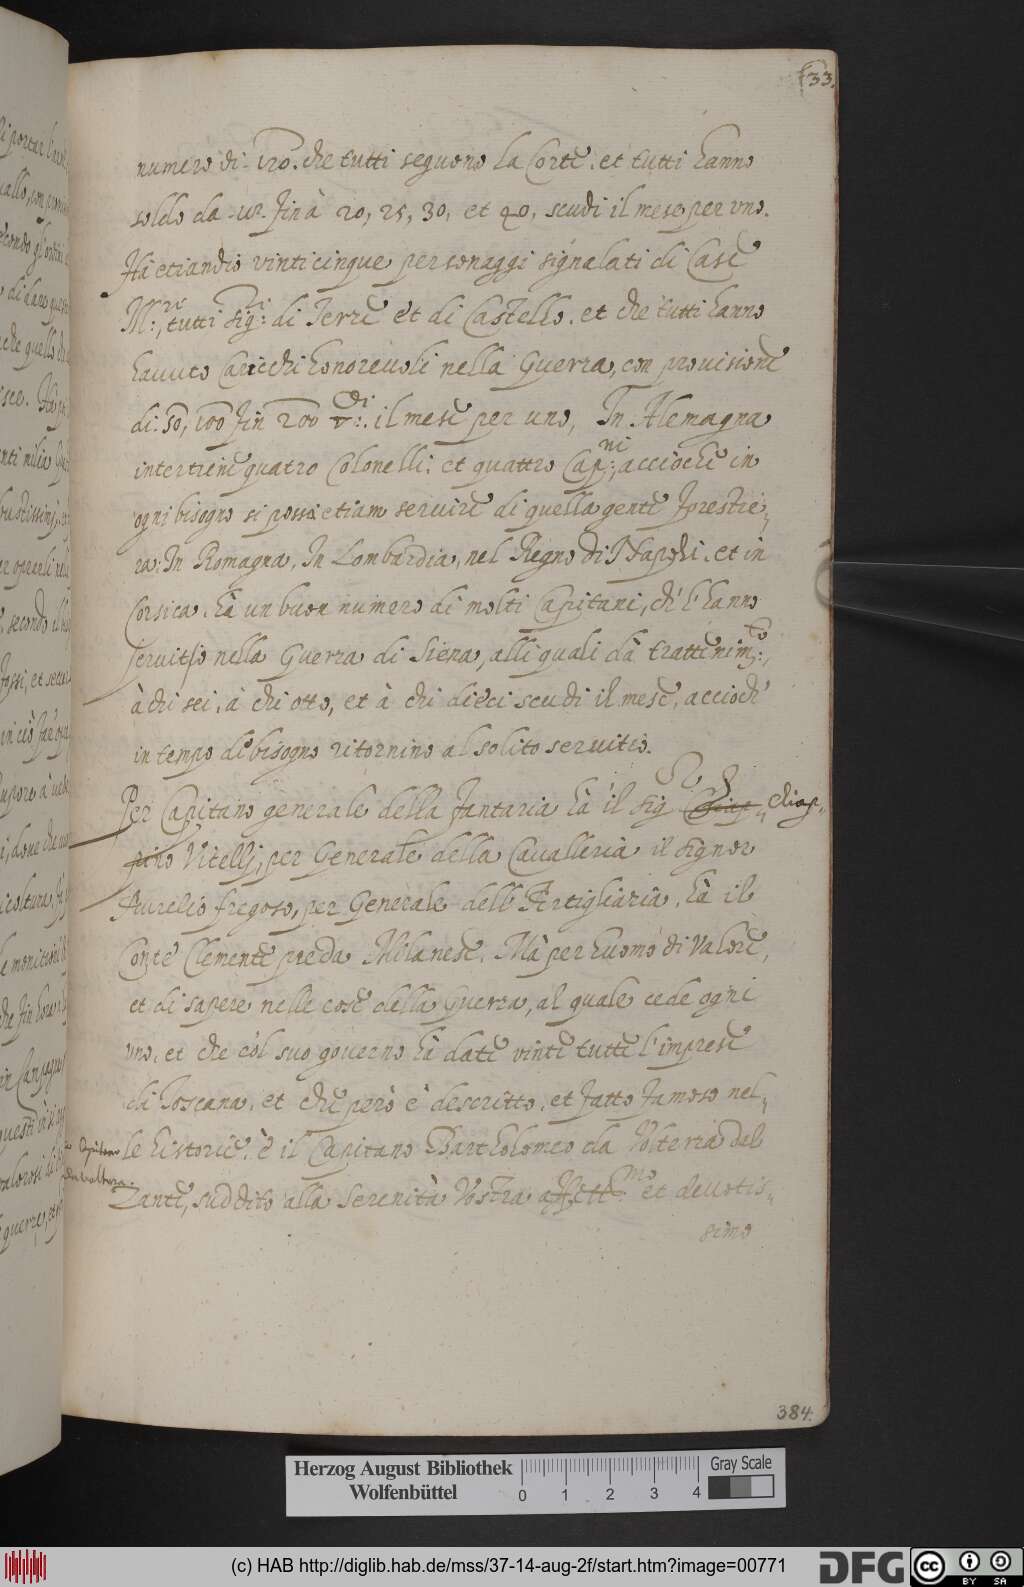 33.
numero di. 120. che tutti seguono la Corte. et tutti hanno
soldo da fin à 20, 25, 30, et 40, scudi il mese per uno.
Hà etiandio vinticinque personaggi signalati di Case
M:re, tutti sig:ri di Terre et di Castello. et che tutti hanno
havuto Caricchi honorevoli nella Guerra, con provisione
di: 50, 100 fin 200 il mese per uno, In Alemagna
intertiene quatro Colonelli. et quattro Cap:ni, accioche in
ogni bisogno si possi etiam servire di quella gente forestie,,
ra. In Romagna, In Lombardia, nel Regno di Napoli. et in
Corsica. hà un buon numero di molti Capitani, ch' l'hanno
servitso nella Guerra di Siena, alli quali dà trattenim:to,
à chi sei, à chi otto, et à chi dieci scudi il mese, accioch'
in tempo di bisogno ritornino al solito servitio.
Per Capitano generale della fantaria hà il sig:r Chiap,,
pino Vitellj, per Generale della Cavalleria il signor
Aurelio fregoso, per Generale dell' Artigliaria, hà il
Conte Clemente preda Milanese. Mà per huomo di valore,
et di sapere nelle cose della Guerra, al quale cede ogni
uno. et che col suo governo hà date vinte tutte l'imprese
di Toscana. et che però è descritto. et fatto famoso nel,,
le historie. è il Capitano Bartholomeo da Volterra dal
Zante, suddito alla Serenità Vostra affett:mo et devotis,,
simo
Capitano
da Voltera.
384.
Herzog August Bibliothek
Wolfenbüttel
0 1 2 3 4
Gray Scale
(c) HAB http://diglib.hab.de/mss/37-14-aug-2f/start.htm?image=00771
DFG
cc BY SA